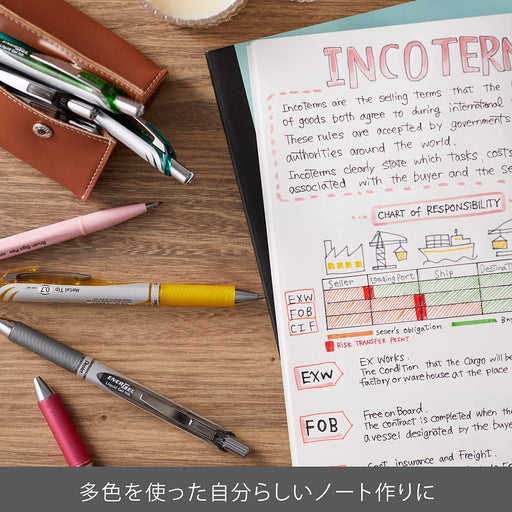 INCOTERM
Incoterms are the selling terms that the
of goods both agree to during international
These rules are accepted by governments
authorities around the world.
Incoterms clearly state which tasks, costs
associated with the buyer and the se
CHART of RESPONSIBILITY
Seller Loading Port Ship Destinatio
EXW
FOB
CIF
seller's obligation Buy
RISK TRANSFER POINT
EXW
EX Works.
The Condition that the Cargo will be
factory or warehouse at the place
FOB
Free on Board.
The contract is completed when the
a vessel designated by the buye
Cost, insurance and Freight.
Brush Sign Pen
Metal Tip 0.7
ENERGEL
Liquid Gel Ink
多色を使った自分らしいノート作りに